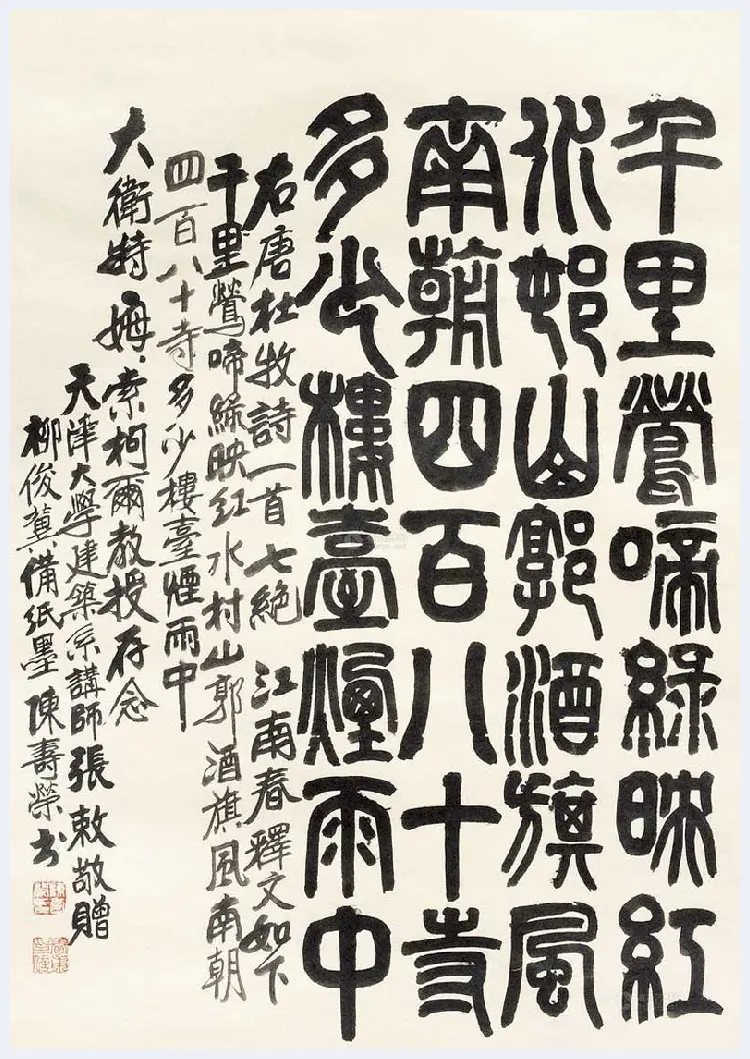 千里鶯啼綠映紅
水邨山郭酒旗風
南朝四百八十寺
多少樓臺煙雨中
右唐杜牧詩一首七絕 江南春釋文如下
千里鶯啼綠映紅水村山郭酒旗風南朝
四百八十寺多少樓臺煙雨中
大衛特姆·索柯爾教授存念
天津大學建築系講師張敕敬贈
柳俊冀備紙墨陳壽榮書